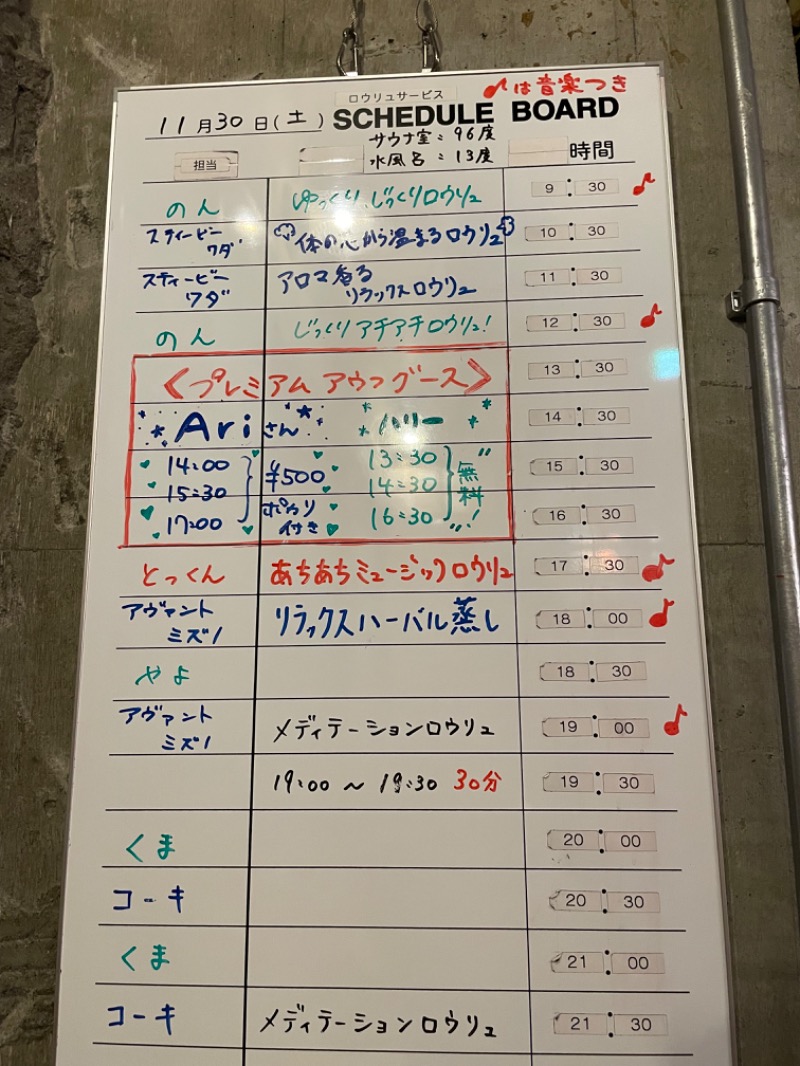 ♪は音楽つき
ロウリュサービス
11月30日(土) SCHEDULE BOARD
サウナ室:96度
水風呂:13度
担当 時間
のん ゆっくり、じっくりロウリュ 9:30 ♪
スティービーワダ 体の芯から温まるロウリュ 10:30
スティービーワダ アロマ香るリラックスロウリュ 11:30
のん じっくりアチアチロウリュ! 12:30 ♪
<プレミアム アウフグース> 13:30
Ariさん ハリー 14:30
14:00 ¥500 13:30 無料! 15:30
15:30 ポカリ付き 14:30
17:00 16:30 16:30
とっくん あちあちミュージックロウリュ 17:30 ♪
アヴァントミズノ リラックスハーバル蒸し 18:00 ♪
やよ 18:30
アヴァントミズノ メディテーションロウリュ 19:00 ♪
19:00 ~ 19:30 30分 19:30
くま 20:00
コーキ 20:30
くま 21:00
コーキ メディテーションロウリュ 21:30